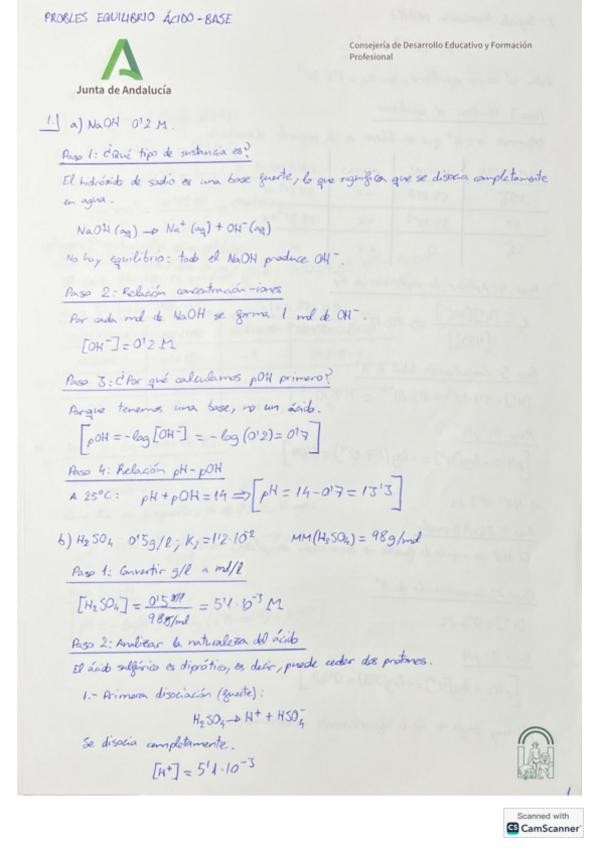 PROBLES EQUILIBRIO ÁCIDO-BASE
Consejería de Desarrollo Educativo y Formación
Profesional
Junta de Andalucía
1.] a) NaOH 0'2 M.
Paso 1: ¿Qué tipo de sustancia es?
El hidróxido de sodio es una base fuerte, lo que significa que se disocia completamente
en agua.
NaOH (aq) → Na⁺ (aq) + OH⁻ (aq)
No hay equilibrio: todo el NaOH produce OH⁻.
Paso 2: Relación concentración-iones
Por cada mol de NaOH se forma 1 mol de OH⁻.
[OH⁻] = 0'2 M
Paso 3: ¿Por qué calculamos pOH primero?
Porque tenemos una base, no un ácido.
[pOH = -log[OH⁻] = -log(0'2) = 0'7]
Paso 4: Relación pH-pOH
A 25°C: pH + pOH = 14 ⇒ [pH = 14 - 0'7 = 13'3]
b) H₂SO₄ 0'5 g/l ; K₂ = 1'2·10⁻² MM(H₂SO₄) = 98 g/mol
Paso 1: Convertir g/l a mol/l
[H₂SO₄] = 0'5 g/l / 98 g/mol = 5'1·10⁻³ M
Paso 2: Analizar la naturaleza del ácido
El ácido sulfúrico es diprótico, es decir, puede ceder dos protones.
1.- Primera disociación (fuerte):
H₂SO₄ → H⁺ + HSO₄⁻
Se disocia completamente.
[H⁺] = 5'1·10⁻³
1
Scanned with
CS CamScanner